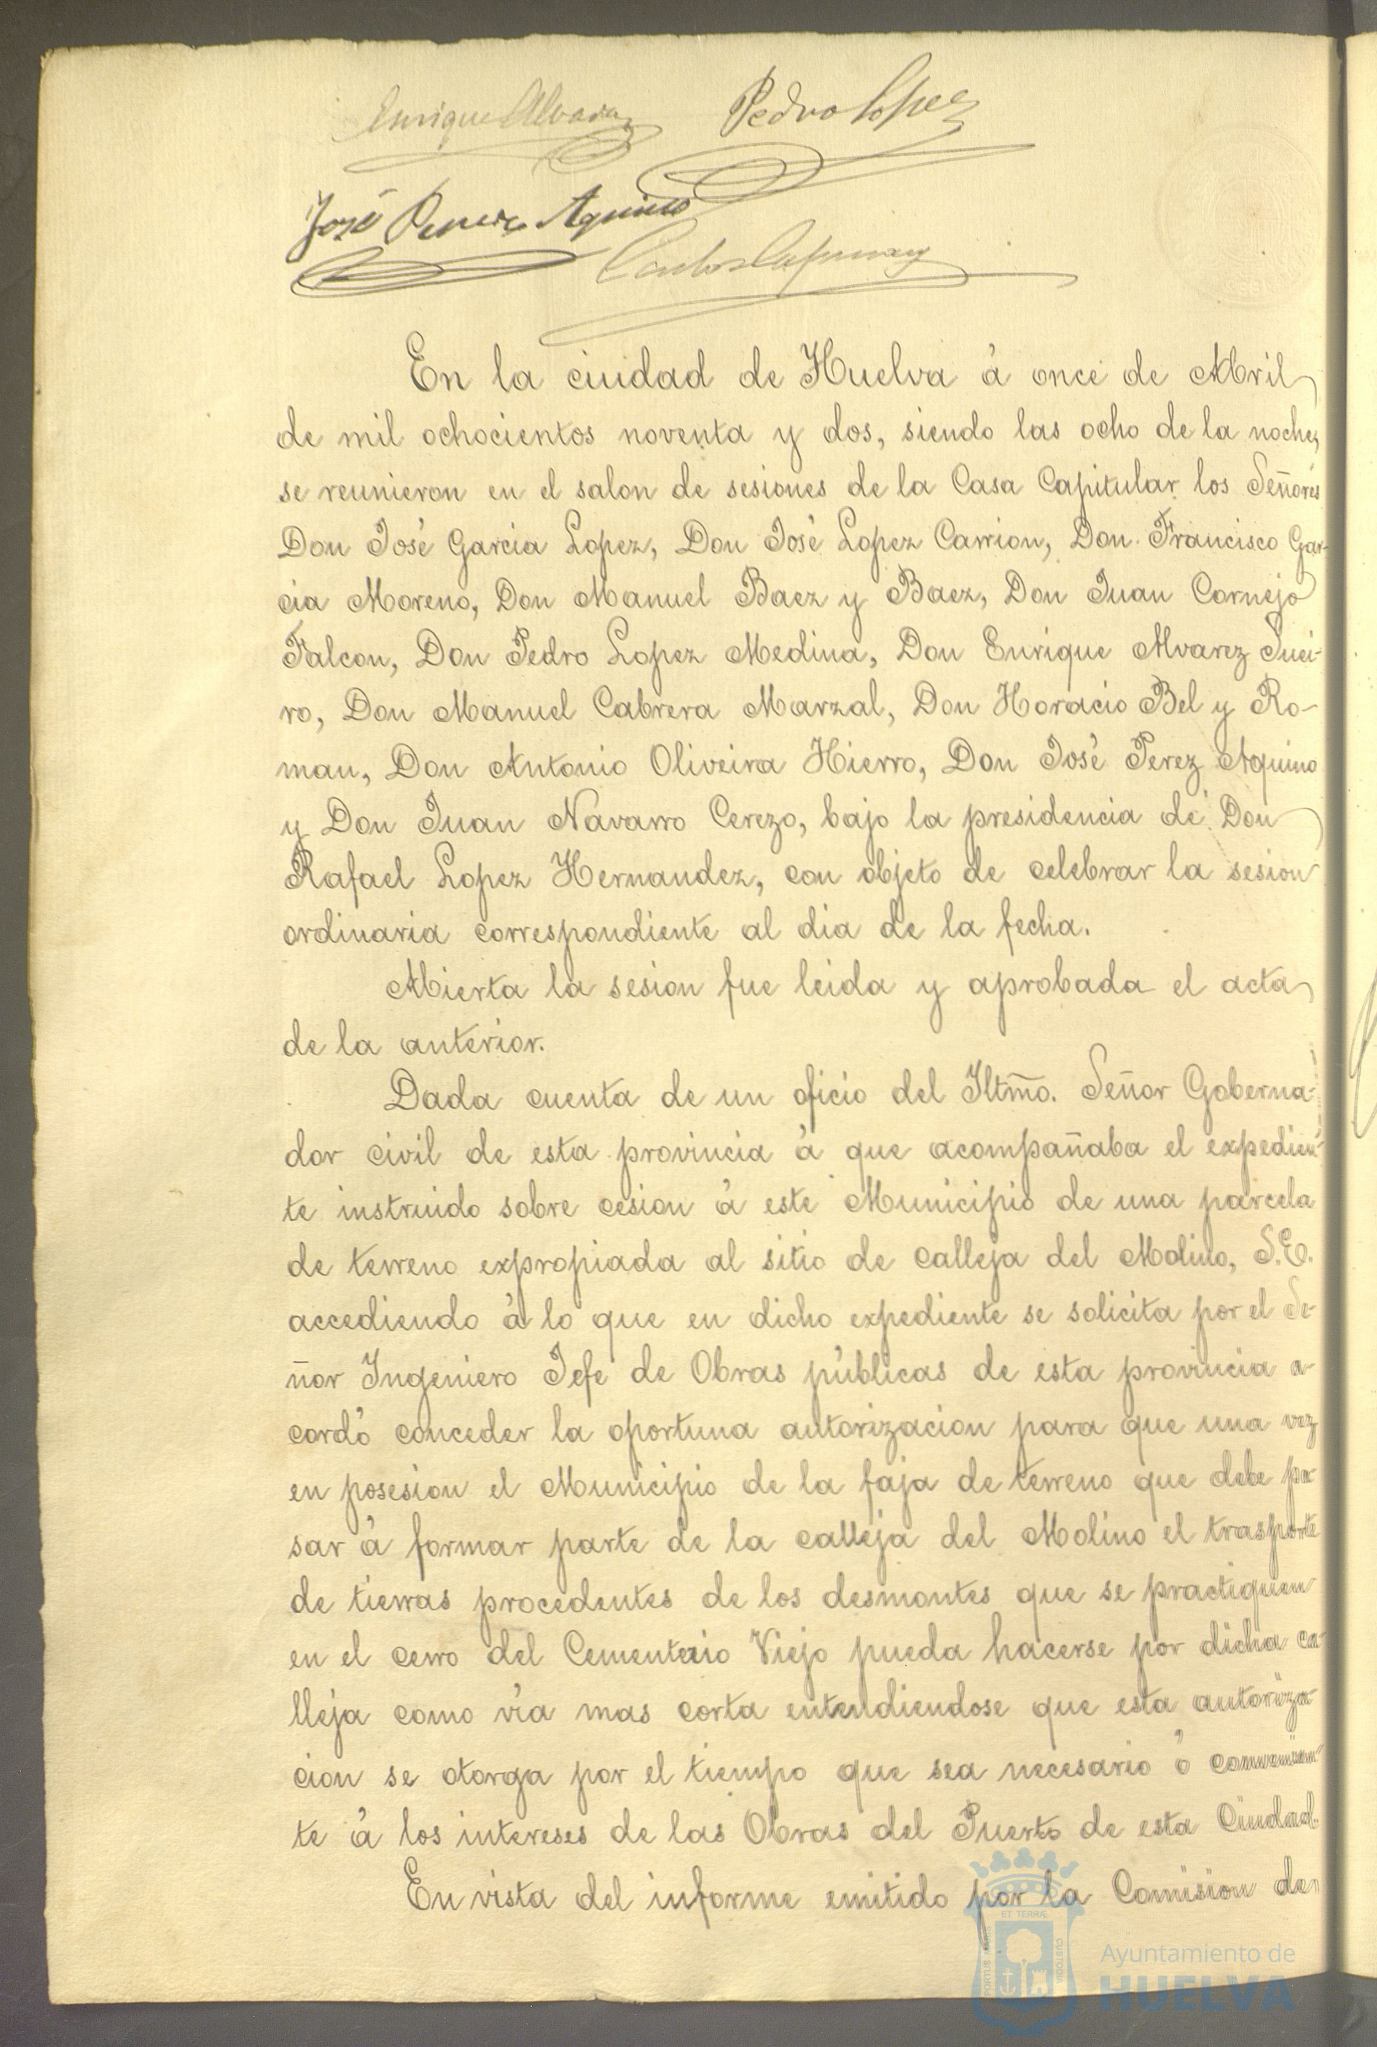 Enrique Alvarez
Pedro Lopez
José Perez Aquino
Carlos
En la ciudad de Huelva á once de Abril
de mil ochocientos noventa y dos, siendo las ocho de la noche,
se reunieron en el salon de sesiones de la Casa Capitular los Señores
Don José Garcia Lopez, Don José Lopez Carrion, Don Francisco Gar-
cia Moreno, Don Manuel Baez y Baez, Don Juan Cornejo
Falcon, Don Pedro Lopez Medina, Don Enrique Alvarez Suei-
ro, Don Manuel Cabrera Marzal, Don Horacio Bel y Ro-
man, Don Antonio Oliveira Hierro, Don José Perez Aquino
y Don Juan Navarro Cerezo, bajo la presidencia de Don
Rafael Lopez Hernandez, con objeto de celebrar la sesion
ordinaria correspondiente al dia de la fecha.
Abierta la sesion fue leida y aprobada el acta
de la anterior.
Dada cuenta de un oficio del Iltmo. Señor Goberna-
dor civil de esta provincia á que acompañaba el expedien-
te instruido sobre cesion á este Municipio de una parcela
de terreno expropiada al sitio de calleja del Molino, S.E.
accediendo á lo que en dicho expediente se solicita por el Se-
ñor Ingeniero Jefe de Obras públicas de esta provincia a-
cordó conceder la oportuna autorizacion para que una vez
en posesion el Municipio de la faja de terreno que debe pa-
sar á formar parte de la calleja del Molino el trasporte
de tierras procedentes de los desmontes que se practiquen
en el cerro del Cementerio Viejo pueda hacerse por dicha ca-
lleja como via mas corta entendiendose que esta autoriza-
cion se otorga por el tiempo que sea necesario ó convenien-
te á los intereses de las Obras del Puerto de esta Ciudad.
En vista del informe emitido por la Comision de
Ayuntamiento de
HUELVA